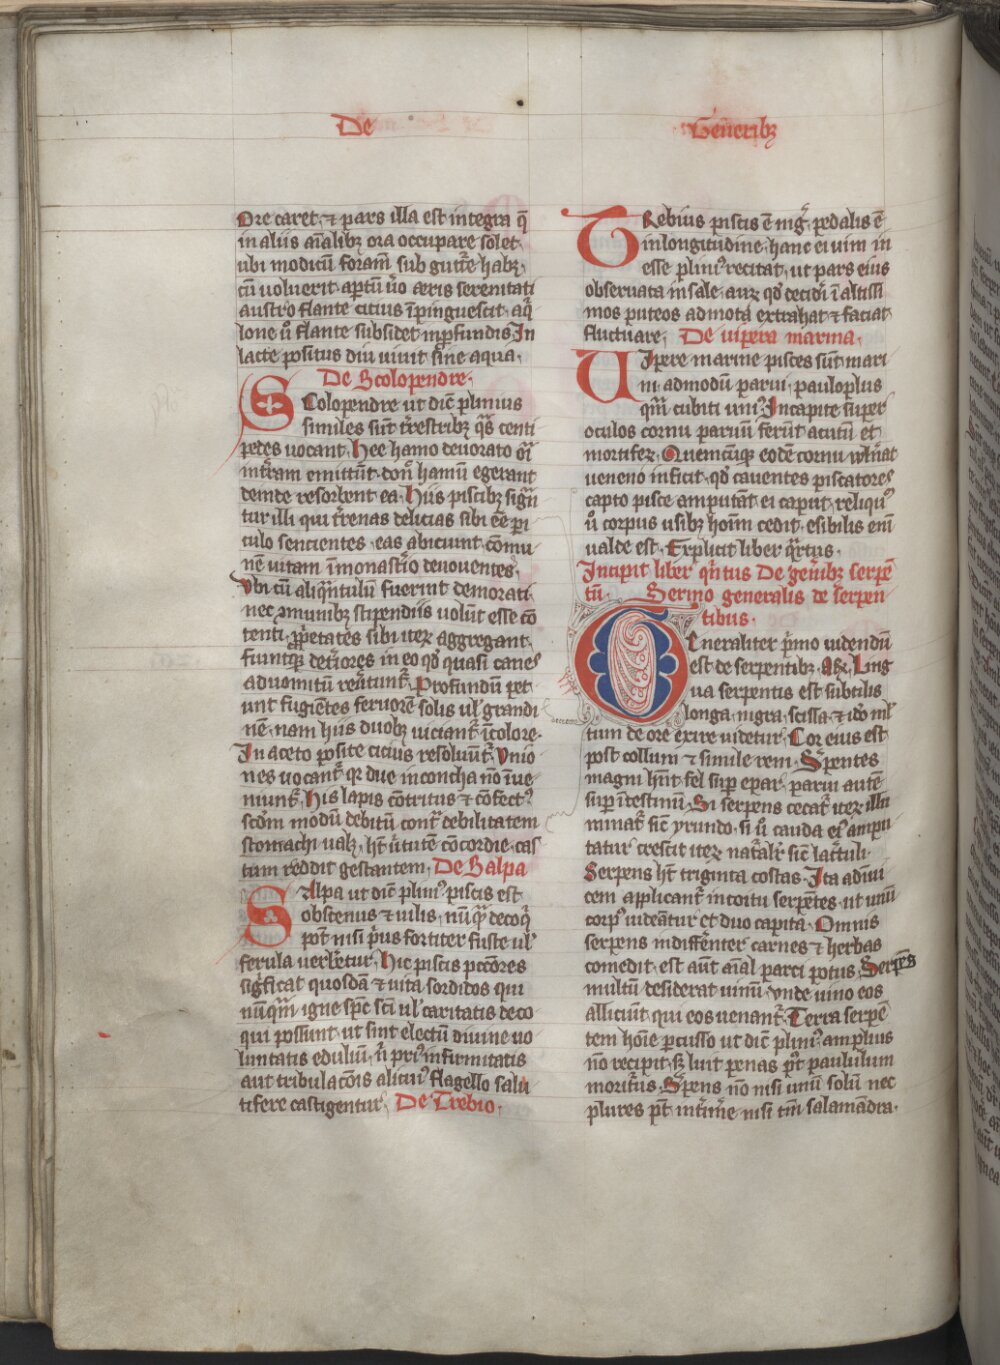 De
Gen̄eribꝫ
Ore caret· ⁊ pars illa est integra q̄
in aliis aīalibꝫ ora occupare solet
ubi modicū foramē sub gutt͛e habꝫ·
cū uoluerit aptū u͛o aeris serenitati
austro flante citius īpinguescit· aq͛
lone u͛ flante subsidet in ꝓfundis In
lacte positus diu uiuit sine aqua·
De Scolopendre·
Scolopendre ut dic̄ plinius
similes sūt t͛restribꝫ q̄s centi
pedes uocant· Hee hamo deuorato oīa
int͛ram emittūt· don̄ hamū egerant
deinde resorbent ea· Hiis piscibꝫ sig͛n
tur illi qui t͛renas delicias sibi eē pi
culo sencientes· eas abiciunt· cōmu
nē uitam ī monast͛io deuouentes·
Vbi cū aliq͛ntulū fuerint demorati·
nec ꝯmunibꝫ stipendiis uolūt esse cō
tenti ꝓp͛etates sibi iteꝝ aggregant·
fiuntqꝫ det͛iores in eo qd̓ quasi canes
ad uomitū reu͛tunt͛· Profundū pet
unt fugiētes feruorē solis ul̓ grandi
nē· nam hiis duobꝫ uiciant͛ ī colore·
In aceto posite citius resoluūt͛· Vnio
nes uocant͛ qꝛ due in concha nō īue
niunt͛· His lapis cōtritus ⁊ cōfectꝰ
scd̄m modū debitū cont͛ debilitatem
stomachi ualꝫ· hꝫ u͛tutē cōcordie· cas
tum reddit gestantem· De Salpa
Salpa ut dic̄ plinꝰ piscis est
obscenus ⁊ uilis· nūq͛ decoq̄
pot̄ nisi p͛us fortiter fuste ul̓
ferula uerb͛etur· Hic piscis pccōres
sig͛ficat quosdā ⁊ uita sordidos qui
nūq͛m igne sp̄c sc̄i ul̓ caritatis deco
qui possunt· ut sint electū diuine uo
luntatis eduliū· n̄ priꝰ infirmitatis
aut tribulacōis alicuiꝰ flagello salu
tifere castigentur· De Trebio·
Trebius piscis ē nig͛· pedalis ē
in longitudine· hanc ei uim in
esse pliniꝰ recitat· ut pars eius
obseruata in sale· auꝝ qd̓ decidi͛t ī altissi
mos puteos admota extrahat ⁊ faciat
fluctuare· De uipera marina·
Uipere marine pisces sūt mari
ni admodū parui· paulo plus
q͛m cubiti uniꝰ· In capite super
oculos cornu paruū ferūt acutū et
mortifeꝝ· Quemcūqꝫ eodē cornu wln̄at
ueneno inficit· qd̓ cauentes piscatores
capto pisce amputāt ei caput· reliquꝰ
u͛ corpus usibꝫ hoīm cedit· esibilis eni
ualde est· Explicit liber q͛rtus·
Incipit liber q͛ntus De gen͛ibꝫ serpē
tū· Sermo generalis de serpen
tibus·
Generaliter p͛mo uidendū
est de serpentibꝫ· Aꝝ· Ling
ua serpentis est subtilis
longa· nigra· scissa· ⁊ ido ml̓
tum de ore exire uidetur· Cor eius est
post collum ⁊ simile reni· S͛pentes
magni hn̄t fel sup epar· parui autē
sup ītestinū· Si serpens cecat͛ iteꝝ illu
minat͛ sic̄ yrundo· si u͛ cauda eiꝰ ampu
tatur crescit iteꝝ nat͛alr̄ sic̄ lac͛tuli·
Serpens hꝫ triginta costas· Ita adiui
cem applicant͛ in coitu serpētes· ut unū
corpꝰ uideātur et duo capita· Omnis
serpens indiff͛enter carnes ⁊ herbas
comedit· est aūt aīal parci potus· Serpēs
multū desiderat uinū· vnde uino eos
alliciūt qui eos uenant͛· Terra serpē
tem hoīe pcusso ut dic̄ pliniꝰ amplius
nō recipit· sꝫ luit penas p͛t paululum
morit͛us· S͛pens nō nisi unū solū nec
plures pt̄ int͛ime· nisi tm̄ salamādra·